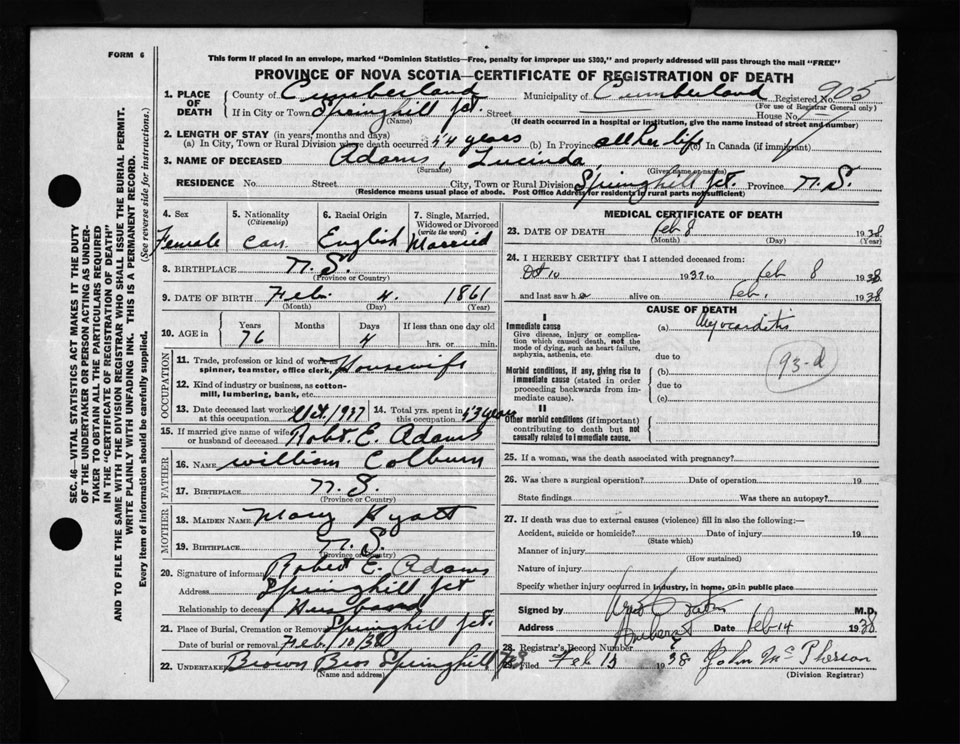 FORM 6
This form if placed in an envelope, marked "Dominion Statistics—Free, penalty for improper use $300," and properly addressed will pass through the mail "FREE"
PROVINCE OF NOVA SCOTIA—CERTIFICATE OF REGISTRATION OF DEATH
SEC. 46—VITAL STATISTICS ACT MAKES IT THE DUTY
OF THE UNDERTAKER OR PERSON ACTING AS UNDER-
TAKER TO OBTAIN ALL THE PARTICULARS REQUIRED
IN THE "CERTIFICATE OF REGISTRATION OF DEATH"
AND TO FILE THE SAME WITH THE DIVISION REGISTRAR WHO SHALL ISSUE THE BURIAL PERMIT.
WRITE PLAINLY WITH UNFADING INK. THIS IS A PERMANENT RECORD.
Every item of information should be carefully supplied. (See reverse side for instructions.)
1. PLACE OF DEATH
County of Cumberland Municipality of Cumberland Registered No. 905
(For use of Registrar General only)
If in City or Town Springhill Jct. Street House No.
(Name) (If death occurred in a hospital or institution, give the name instead of street and number)
2. LENGTH OF STAY (in years, months and days)
(a) In City, Town or Rural Division where death occurred 54 years (b) In Province all her life (c) In Canada (if immigrant)
3. NAME OF DECEASED Adams, Lucinda,
(Surname) (Given name or names)
RESIDENCE No. Street City, Town or Rural Division Springhill Jct. Province N.S.
(Residence means usual place of abode. Post Office Address for residents in rural parts not sufficient)
4. Sex
Female
5. Nationality
(Citizenship)
Can
6. Racial Origin
English
7. Single, Married,
Widowed or Divorced
(write the word)
Married
8. BIRTHPLACE N.S.
(Province or Country)
9. DATE OF BIRTH Feb. 4. 1861
(Month) (Day) (Year)
10. AGE in
Years Months Days If less than one day
76 4 hrs. or min.
OCCUPATION
11. Trade, profession or kind of work as
spinner, teamster, office clerk, Housewife
12. Kind of industry or business, as cotton-
mill, lumbering, bank, etc.
13. Date deceased last worked
at this occupation Oct. 1937
14. Total yrs. spent in
this occupation 53 years
15. If married give name of wife
or husband of deceased Robt. E. Adams
FATHER
16. NAME William Colburn
17. BIRTHPLACE N.S.
(Province or Country)
MOTHER
18. MAIDEN NAME Mary Hyatt
19. BIRTHPLACE N.S.
(Province or Country)
20. Signature of informant Robert E. Adams
Address Springhill Jct
Relationship to deceased Husband
21. Place of Burial, Cremation or Removal Springhill Jct.
Date of burial or removal Feb. 10/38
22. UNDERTAKER Brown Bros Springhill
(Name and address)
MEDICAL CERTIFICATE OF DEATH
23. DATE OF DEATH Feb 8 1938
(Month) (Day) (Year)
24. I HEREBY CERTIFY that I attended deceased from:
Oct 10 1937 to Feb 8 1938
and last saw her alive on Feb. 1938
CAUSE OF DEATH
I
Immediate cause
Give disease, injury or complica-
tion which caused death, not the
mode of dying, such as heart failure,
asphyxia, asthenia, etc.
(a) Myocarditis
due to
93-d
Morbid conditions, if any, giving rise to
immediate cause (stated in order
proceeding backwards from im-
mediate cause).
(b)
due to
(c)
II
Other morbid conditions (if important)
contributing to death but not
causally related to immediate cause.
25. If a woman, was the death associated with pregnancy?
26. Was there a surgical operation? Date of operation 19
State findings Was there an autopsy?
27. If death was due to external causes (violence) fill in also the following:—
Accident, suicide or homicide? Date of injury 19
(State which)
Manner of injury
(How sustained)
Nature of injury
Specify whether injury occurred in industry, in home, or in public place
Signed by M.D.
Address Amherst Date Feb 14 1938
28. Registrar's Record Number
29. Filed Feb 15 1938 John McPherson
(Division Registrar)